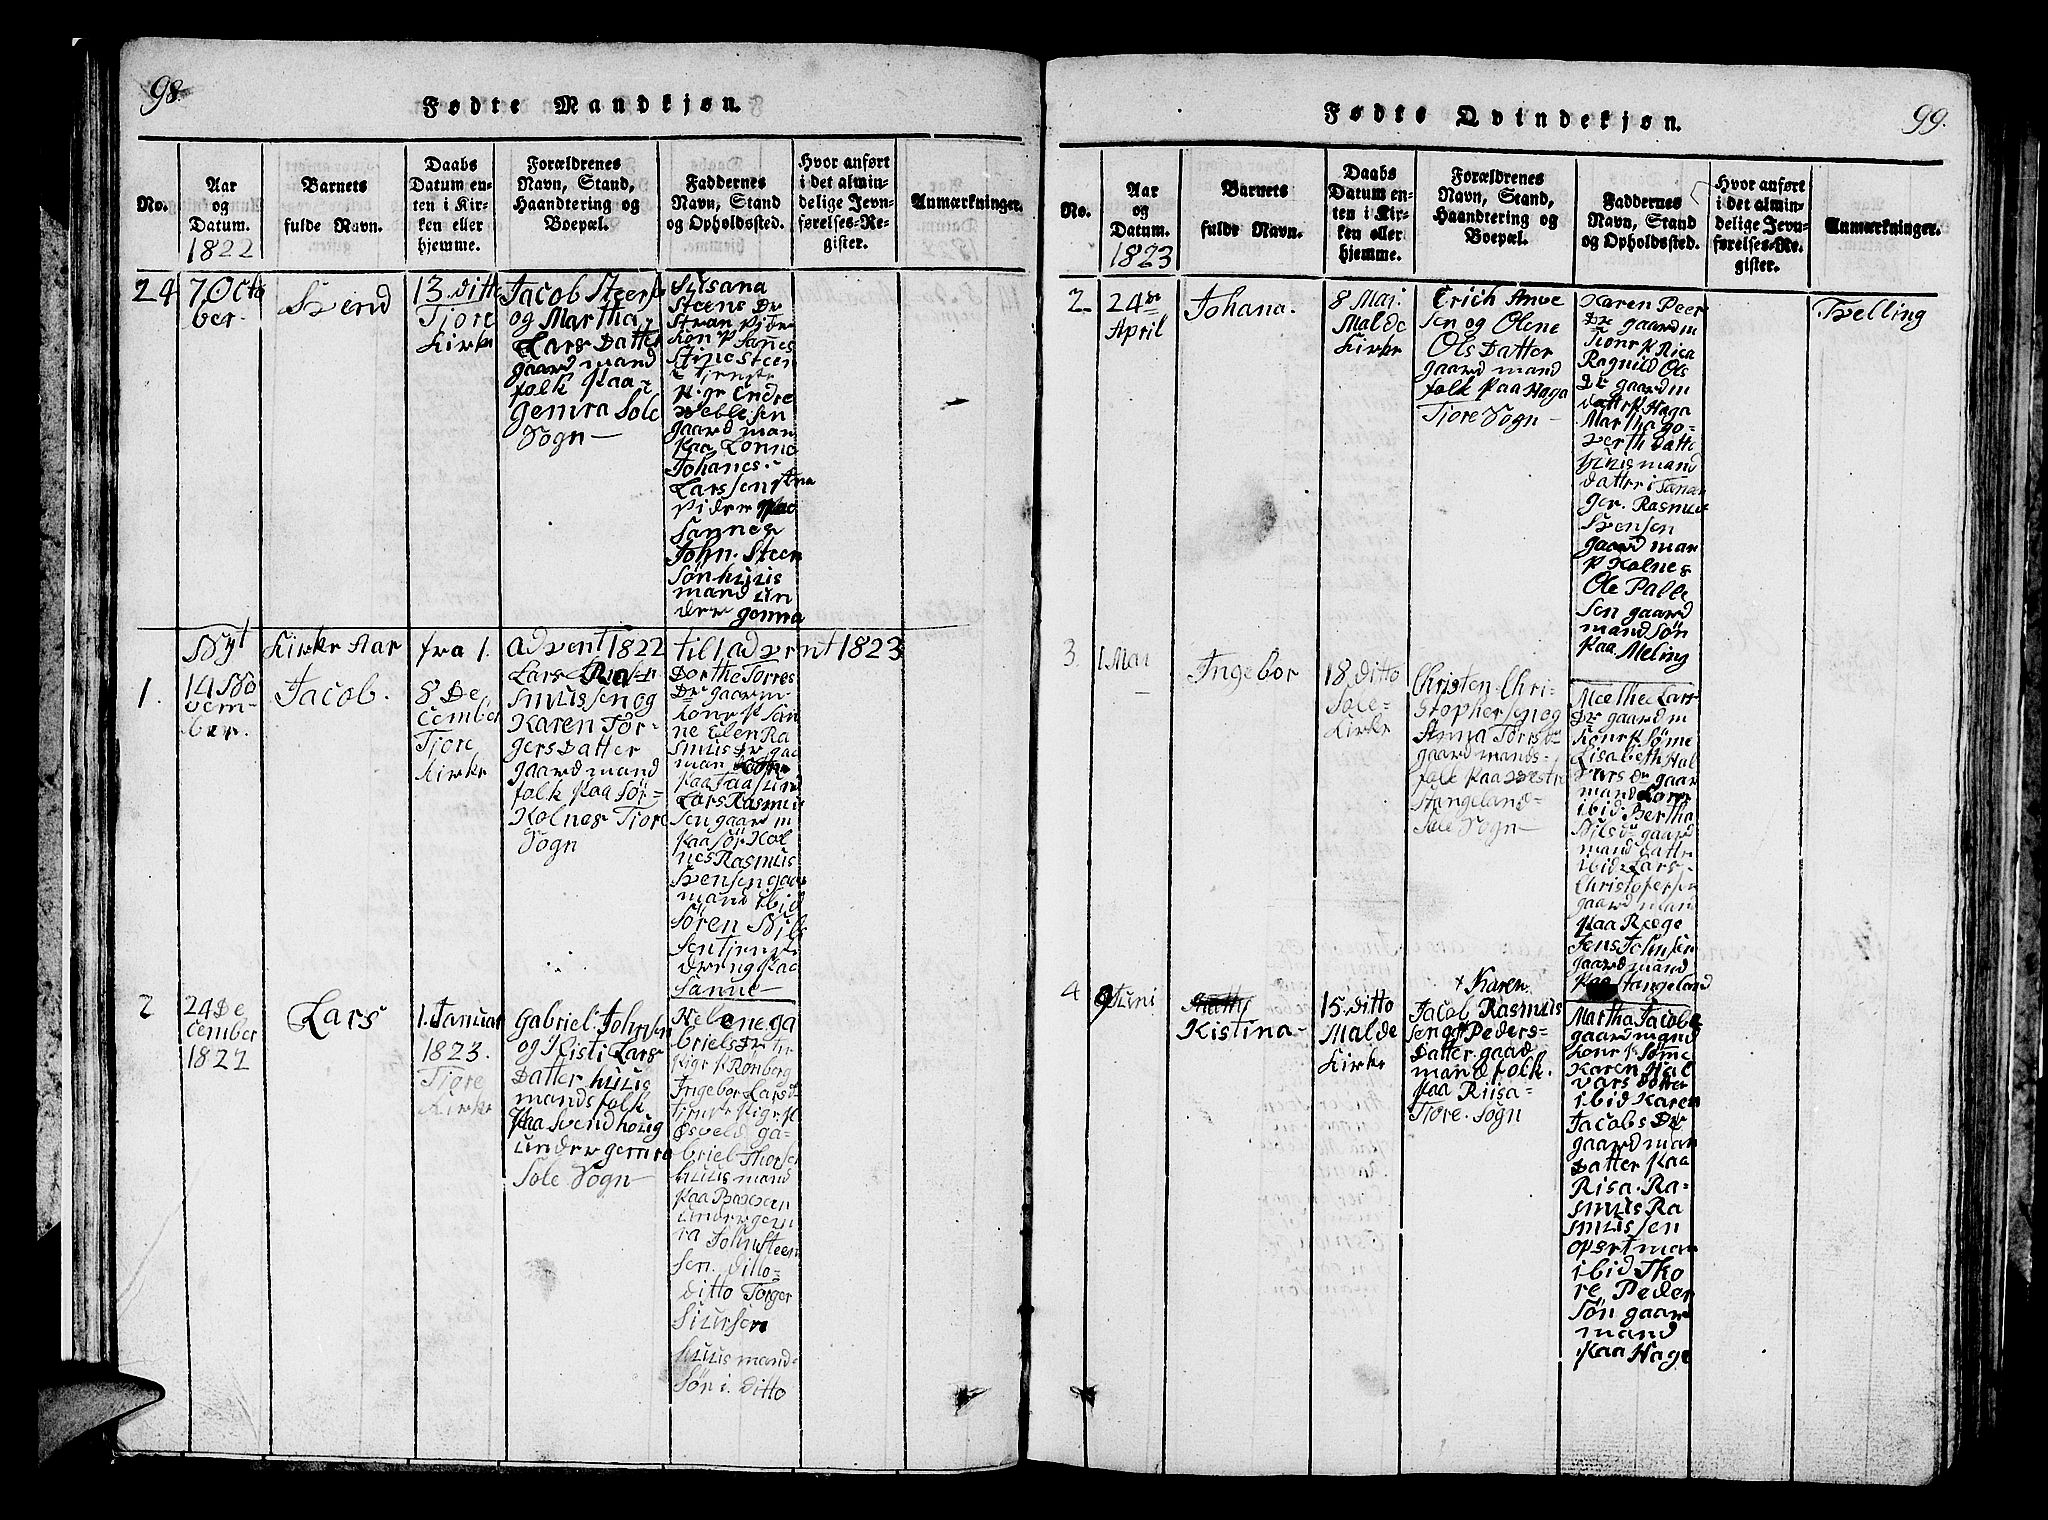 98.
Fødte Mandkjøn.
No.
Aar
og
Datum.
1822
Barnets
fulde Navn.
Daabs
Datum en-
ten i Kir-
ken eller
hjemme.
Forældrenes
Navn, Stand,
Haandtering og
Boepæl.
Faddernes
Navn, Stand
og Opholdssted.
Hvor anført
i det almin-
delige Jevn-
førelses-Re-
gister.
Anmærkninger.
24
7 Octo
ber.
Svend
13 ditto
Tjore
Kirke
Jacob Steens
og Martha
Lars Datter
gaardmand
folk paa
gemra Sole
Sogn
Susana
Steens Dr
kon p Sanes
Stine Steen
pige Endre
gaard man
paa Lonne
Johanes
Larssen
Sannes
John Steen
Søn huus
mand un
der gemra
Nyt
Kirke Aar
fra 1.
advent 1822
til 1 advent 1823
1.
14 No
vem-
ber.
Jacob.
8 De
cember
Tjore
Kirke
Lars Ra-
smussen og
Karen Tør-
gers Datter
gaardmand
folk paa Sør-
Kolnes Tjore
Sogn
Dorthe Torres
Dr gaarm
kone p San
ne Elen Ra
smus Dr gaa
man
Lars Rasmus
sen gaard m
paa Sør Kol
nes Rasmus
Svensen gaar
mand ibid
Søren Nils
sen tjeneste
dreng paa
Sanne
2
24 De
cember
1822
Lars
1. Januar
1823.
Tjore
Kirke
Gabriel Johnsen
og Kisti Lars
Datter huus
mandsfolk
paa Svendhoug
under gemra
Sole Sogn
Helene ga
briels Dr
pige p Rønberg
Ingebor Lars d
Øsveld ga-
briel Thorsen
huus mand
paa
under gem
ra John Steen
sen. ditto
ditto Torger
Siursen
huus mand-
Søn i ditto
99.
Fødte Qvindekjøn.
No.
Aar
og
Datum.
1823
Barnets
fulde Navn.
Daabs
Datum en-
ten i Kir-
ken eller
hjemme.
Forældrenes
Navn, Stand,
Haandtering og
Boepæl.
Faddernes
Navn, Stand
og Opholdssted.
Hvor anført
i det almin-
delige Jevn-
førelses-Re-
gister.
Anmærkninger.
2
24de
April
Johana.
8 Mai
Malde
Kirke
Erich Anve
sen og Olene
Ols Datter
gaard mand
folk paa Haga
Tjore Sogn
Karen Peer
Dr gaard m
kone p Risa
Ragnild Ols
Dr gaard m
datter p Haga
Martha go-
verth Datte
huus mand
datter i Tanan
ger. Rasmus
Svensen
gaard man
p Kolnes
Ole Palle
sen gaard
mand søn
paa Meling
Tvelling
3.
1 Mai
Ingebor
18 ditto
Sole-
Kirke
Christen Chri-
stophersen og
Anna Torrs Dr
gaard mands-
folk paa Vestre
Stangeland
Sole Sogn
Meethe Lars
Dr gaard m
kone p Sømme
Lisabeth Hal
vars dr gaar
mand kone
ibid Bertha
Nils dr gaard
mand datter
ibid Lars
Christofersen
gaard mand
paa Ræge
Jens Johnsen
gaard mand
paa Stangeland
4
9 Juni
Kistina
15 ditto
Malde
Kirke
+ Karen
Jacob Rasmus
sen og Peders-
Datter gaad
mand folk.
paa Riisa
Tjore Sogn
Martha Jacobs
gaard mand
kone p Sømme
Karen Hal
vars datter
ibid Karen
Jacobs Dr
gaard man
Datter paa
Risa. Ra-
smus Ra
smussen
opsetman
ibid Tho
re Peder
søn gaar
mand
paa Hage